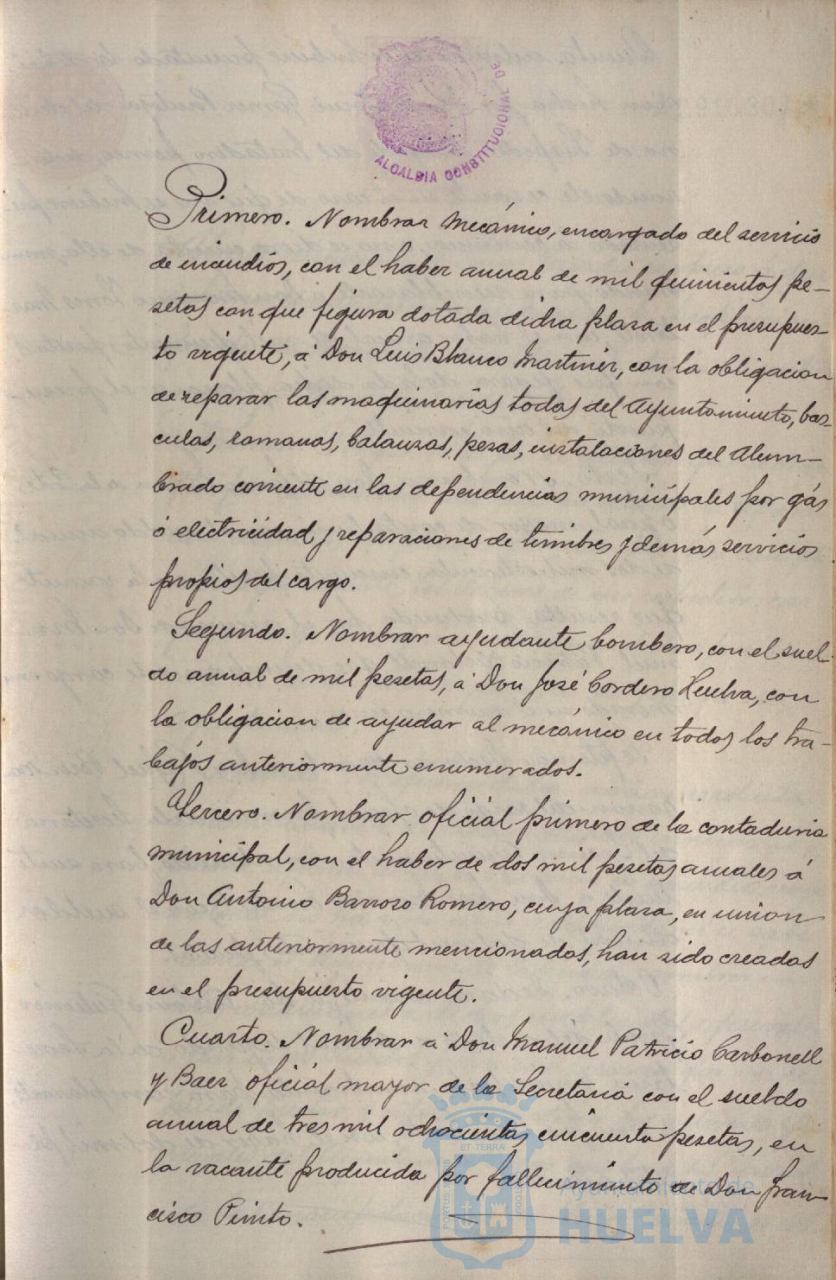 ALCALDIA CONSTITUCIONAL DE
Primero. Nombrar Mecánico, encargado del servicio
de incendios, con el haber anual de mil quinientas pe-
setas con que figura dotada dicha plaza en el presupues-
to vigente, á Don Luis Blanco Martinez, con la obligacion
de reparar las maquinarias todas del Ayuntamiento, bas-
culas, romanas, balanzas, pesas, instalaciones del Alum-
brado corriente en las dependencias municipales por gás
ó electricidad y reparaciones de timbres y demás servicios
propios del cargo.
Segundo. Nombrar ayudante bombero, con el suel-
do anual de mil pesetas, á Don José Cordero Huelva, con
la obligacion de ayudar al mecánico en todos los tra-
bajos anteriormente enumerados.
Tercero. Nombrar oficial primero de la contaduria
municipal, con el haber de dos mil pesetas anuales á
Don Antonio Barroso Romero, cuya plaza, en union
de las anteriormente mencionadas, han sido creadas
en el presupuesto vigente.
Cuarto. Nombrar á Don Manuel Patricio Carbonell
y Baez oficial mayor de la Secretaria con el sueldo
anual de tres mil ochocientas cincuenta pesetas, en
la vacante producida por fallecimiento de Don Fran-
cisco Pinto.
Ayuntamiento de
HUELVA